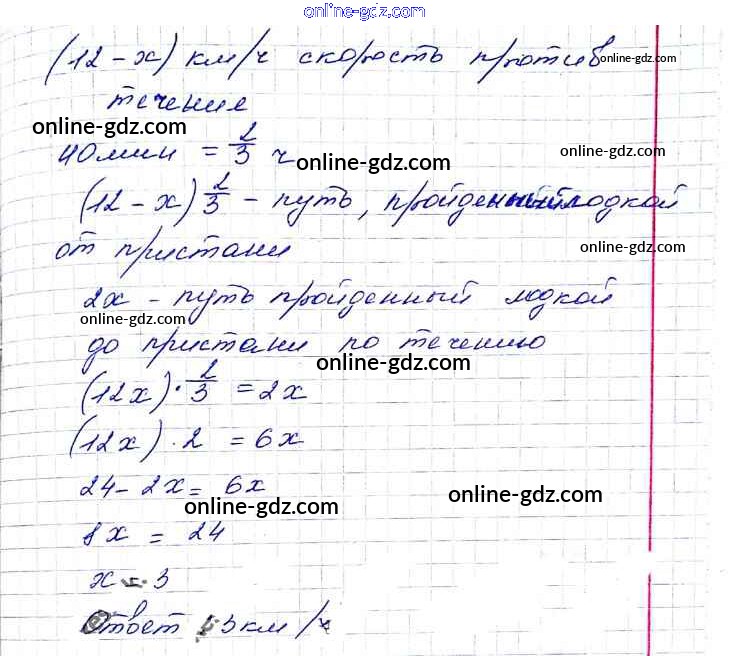 online-gdz.com
(12-x) км/ч скорость против
online-gdz.com
течение
online-gdz.com
40мин = 2/3 ч
online-gdz.com
online-gdz.com
(12-x) 2/3 - путь, пройденный лодкой
от пристани
online-gdz.com
2x - путь пройденный лодкой
online-gdz.com
до пристани по течению
online-gdz.com
(12x)·2/3 = 2x
(12x)·2 = 6x
24-2x= 6x
online-gdz.com
online-gdz.com
8x = 24
x = 3
Ответ 3км/ч